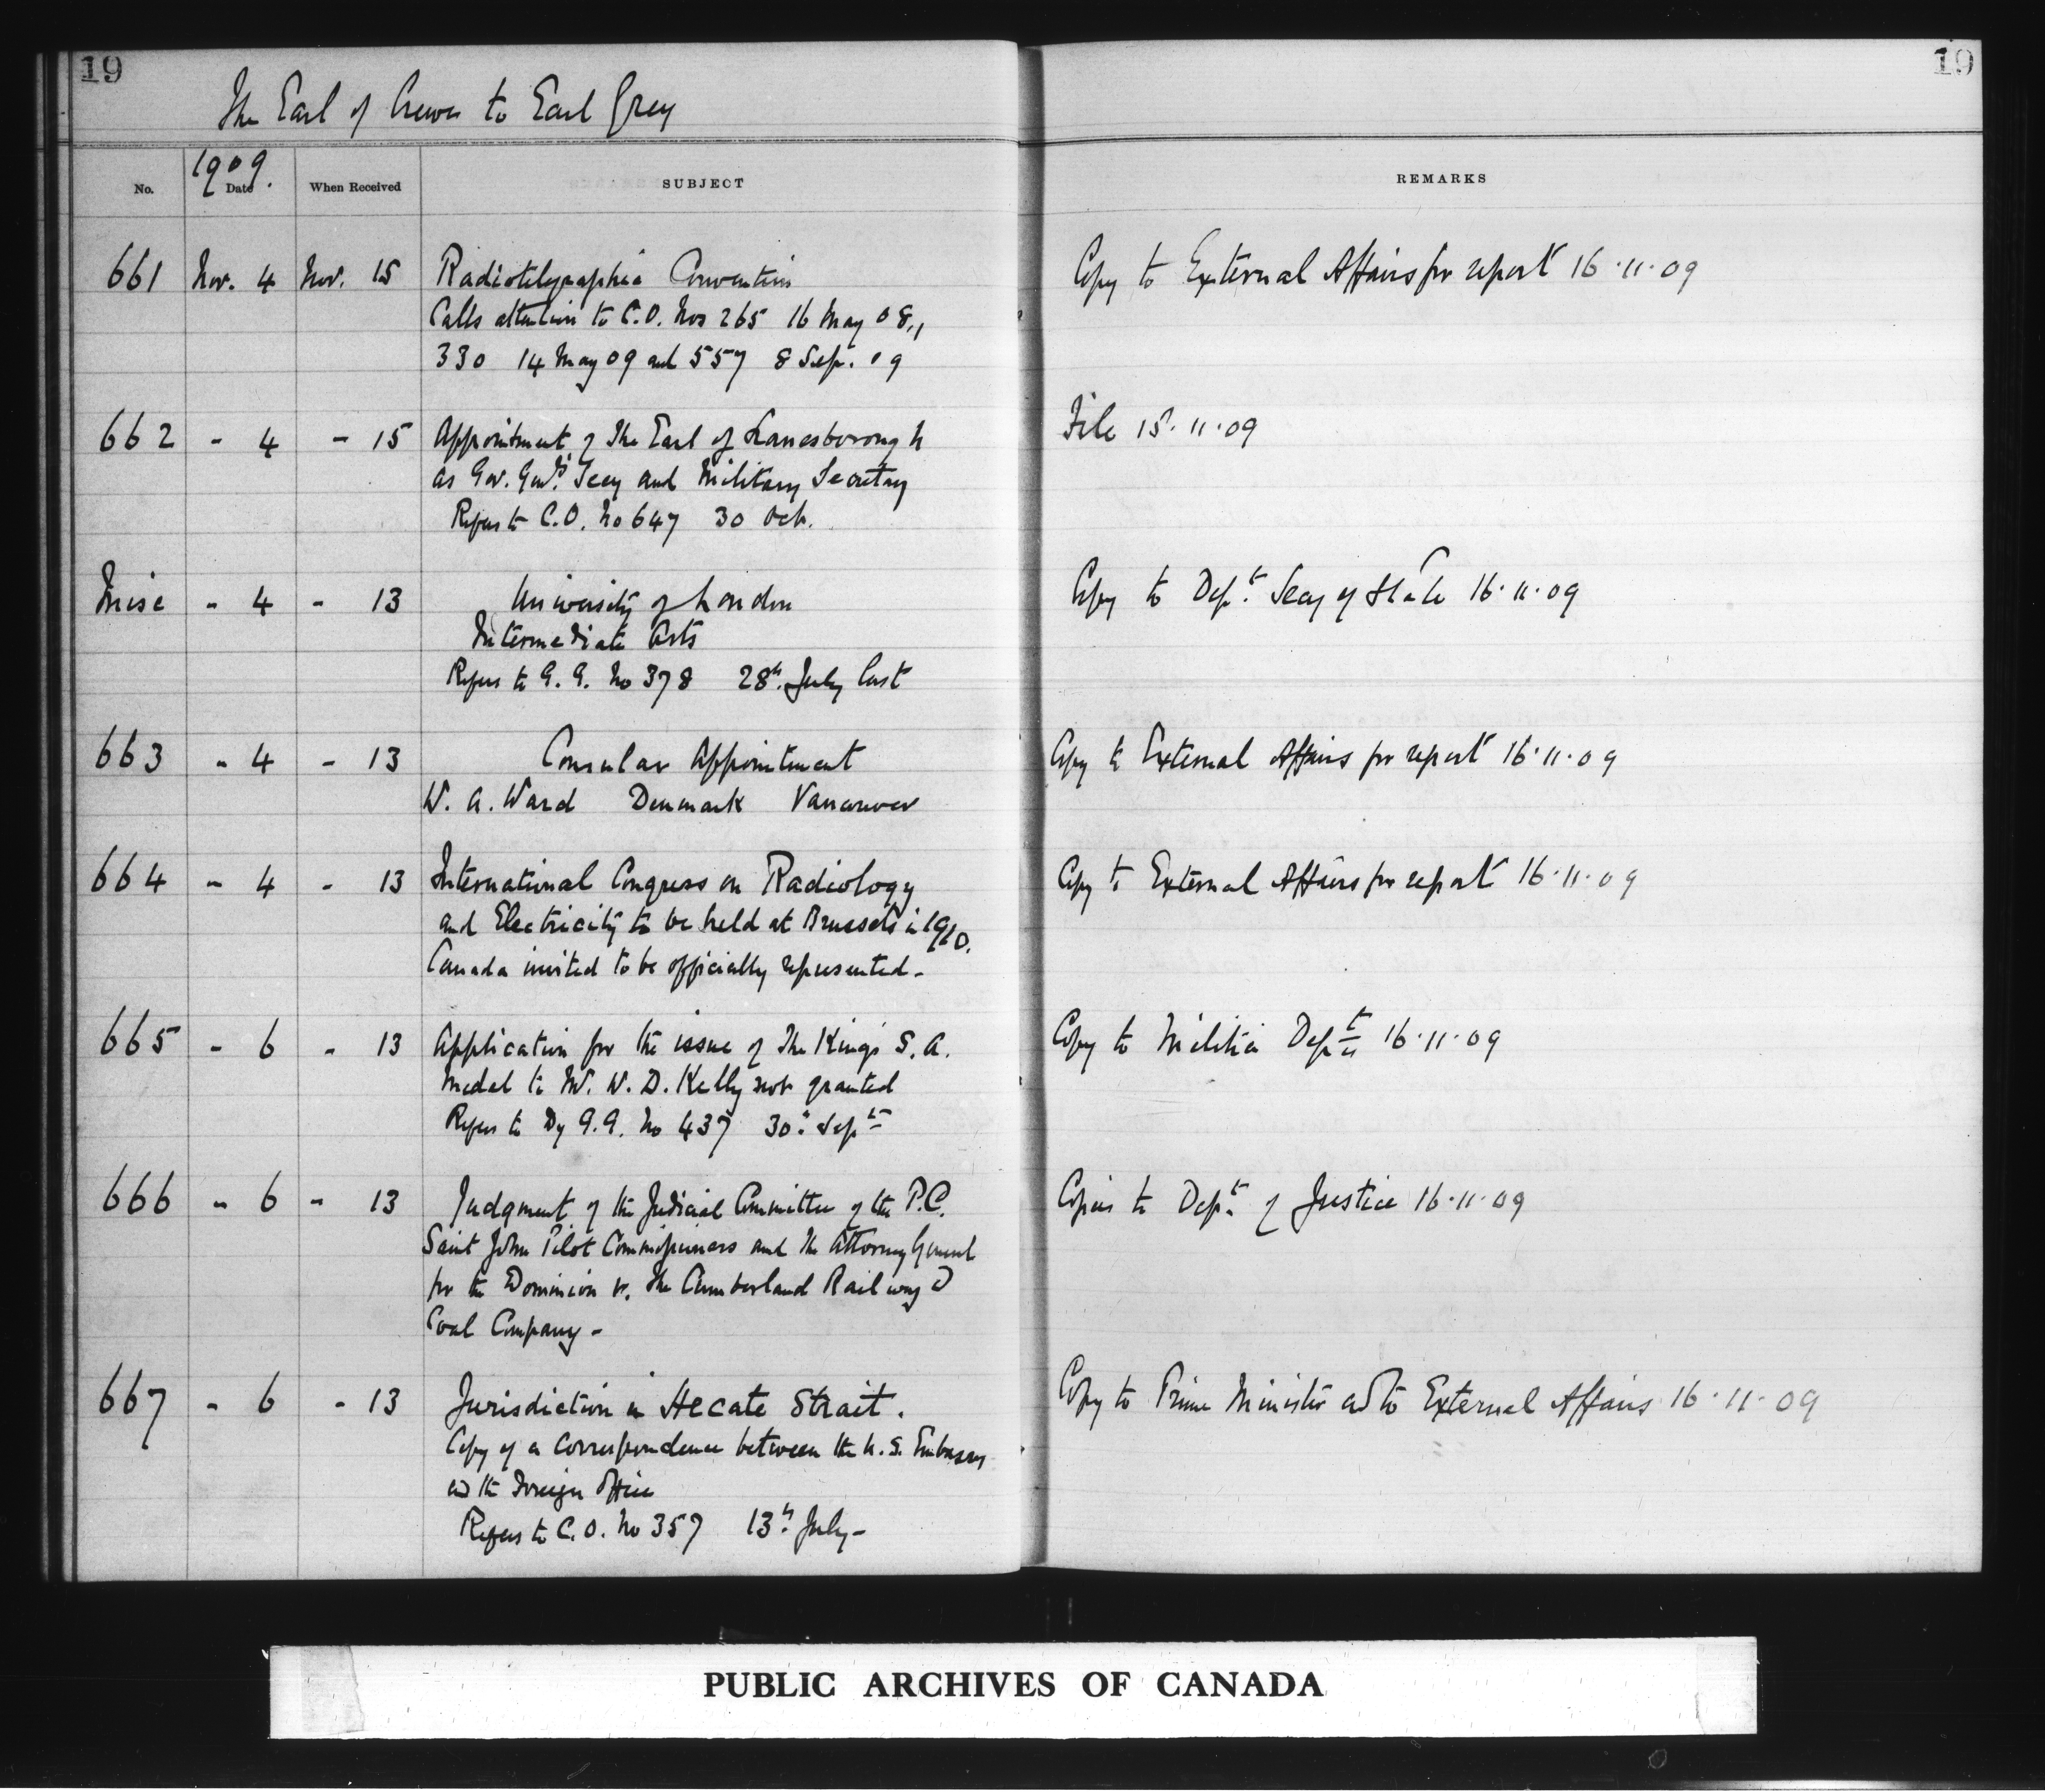 19
19
The Earl of Crewe to Earl Grey
1909.
No. Date When Received SUBJECT REMARKS
661 Nov. 4 Nov. 15 Radiotelegraphic Convention Copy to External Affairs for report 16.11.09
Calls attention to C.O. Nos 265 16 May 08,
330 14 May 09 and 557 8 Sep. 09
662 - 4 - 15 Appointment of The Earl of Lanesborough File 15.11.09
as Gov. Genl's Secy and Military Secretary
Refers to C.O. No 647 30 Oct.
Misc - 4 - 13 University of London Copy to Dept. Secy of State 16.11.09
Intermediate Arts
Refers to G.G. No 378 28th July last
663 - 4 - 13 Consular Appointment Copy to External Affairs for report 16.11.09
W. A. Ward Denmark Vancouver
664 - 4 - 13 International Congress on Radiology Copy to External Affairs for report 16.11.09
and Electricity to be held at Brussels in 1910.
Canada invited to be officially represented -
665 - 6 - 13 Application for the issue of The King's S. A. Copy to Militia Dept 16.11.09
Medal to Mr. W. D. Kelly not granted
Refers to Dy G.G. No 437 30th Sept
666 - 6 - 13 Judgment of the Judicial Committee of the P.C. Copies to Dept. of Justice 16.11.09
Saint John Pilot Commissioners and The Attorney General
for the Dominion v. The Cumberland Railway &
Coal Company -
667 - 6 - 13 Jurisdiction in Hecate Strait. Copy to Prime Minister and to External Affairs 16.11.09
Copy of a correspondence between the U.S. Embassy
and the Foreign Office
Refers to C.O. No 357 13th July -
PUBLIC ARCHIVES OF CANADA